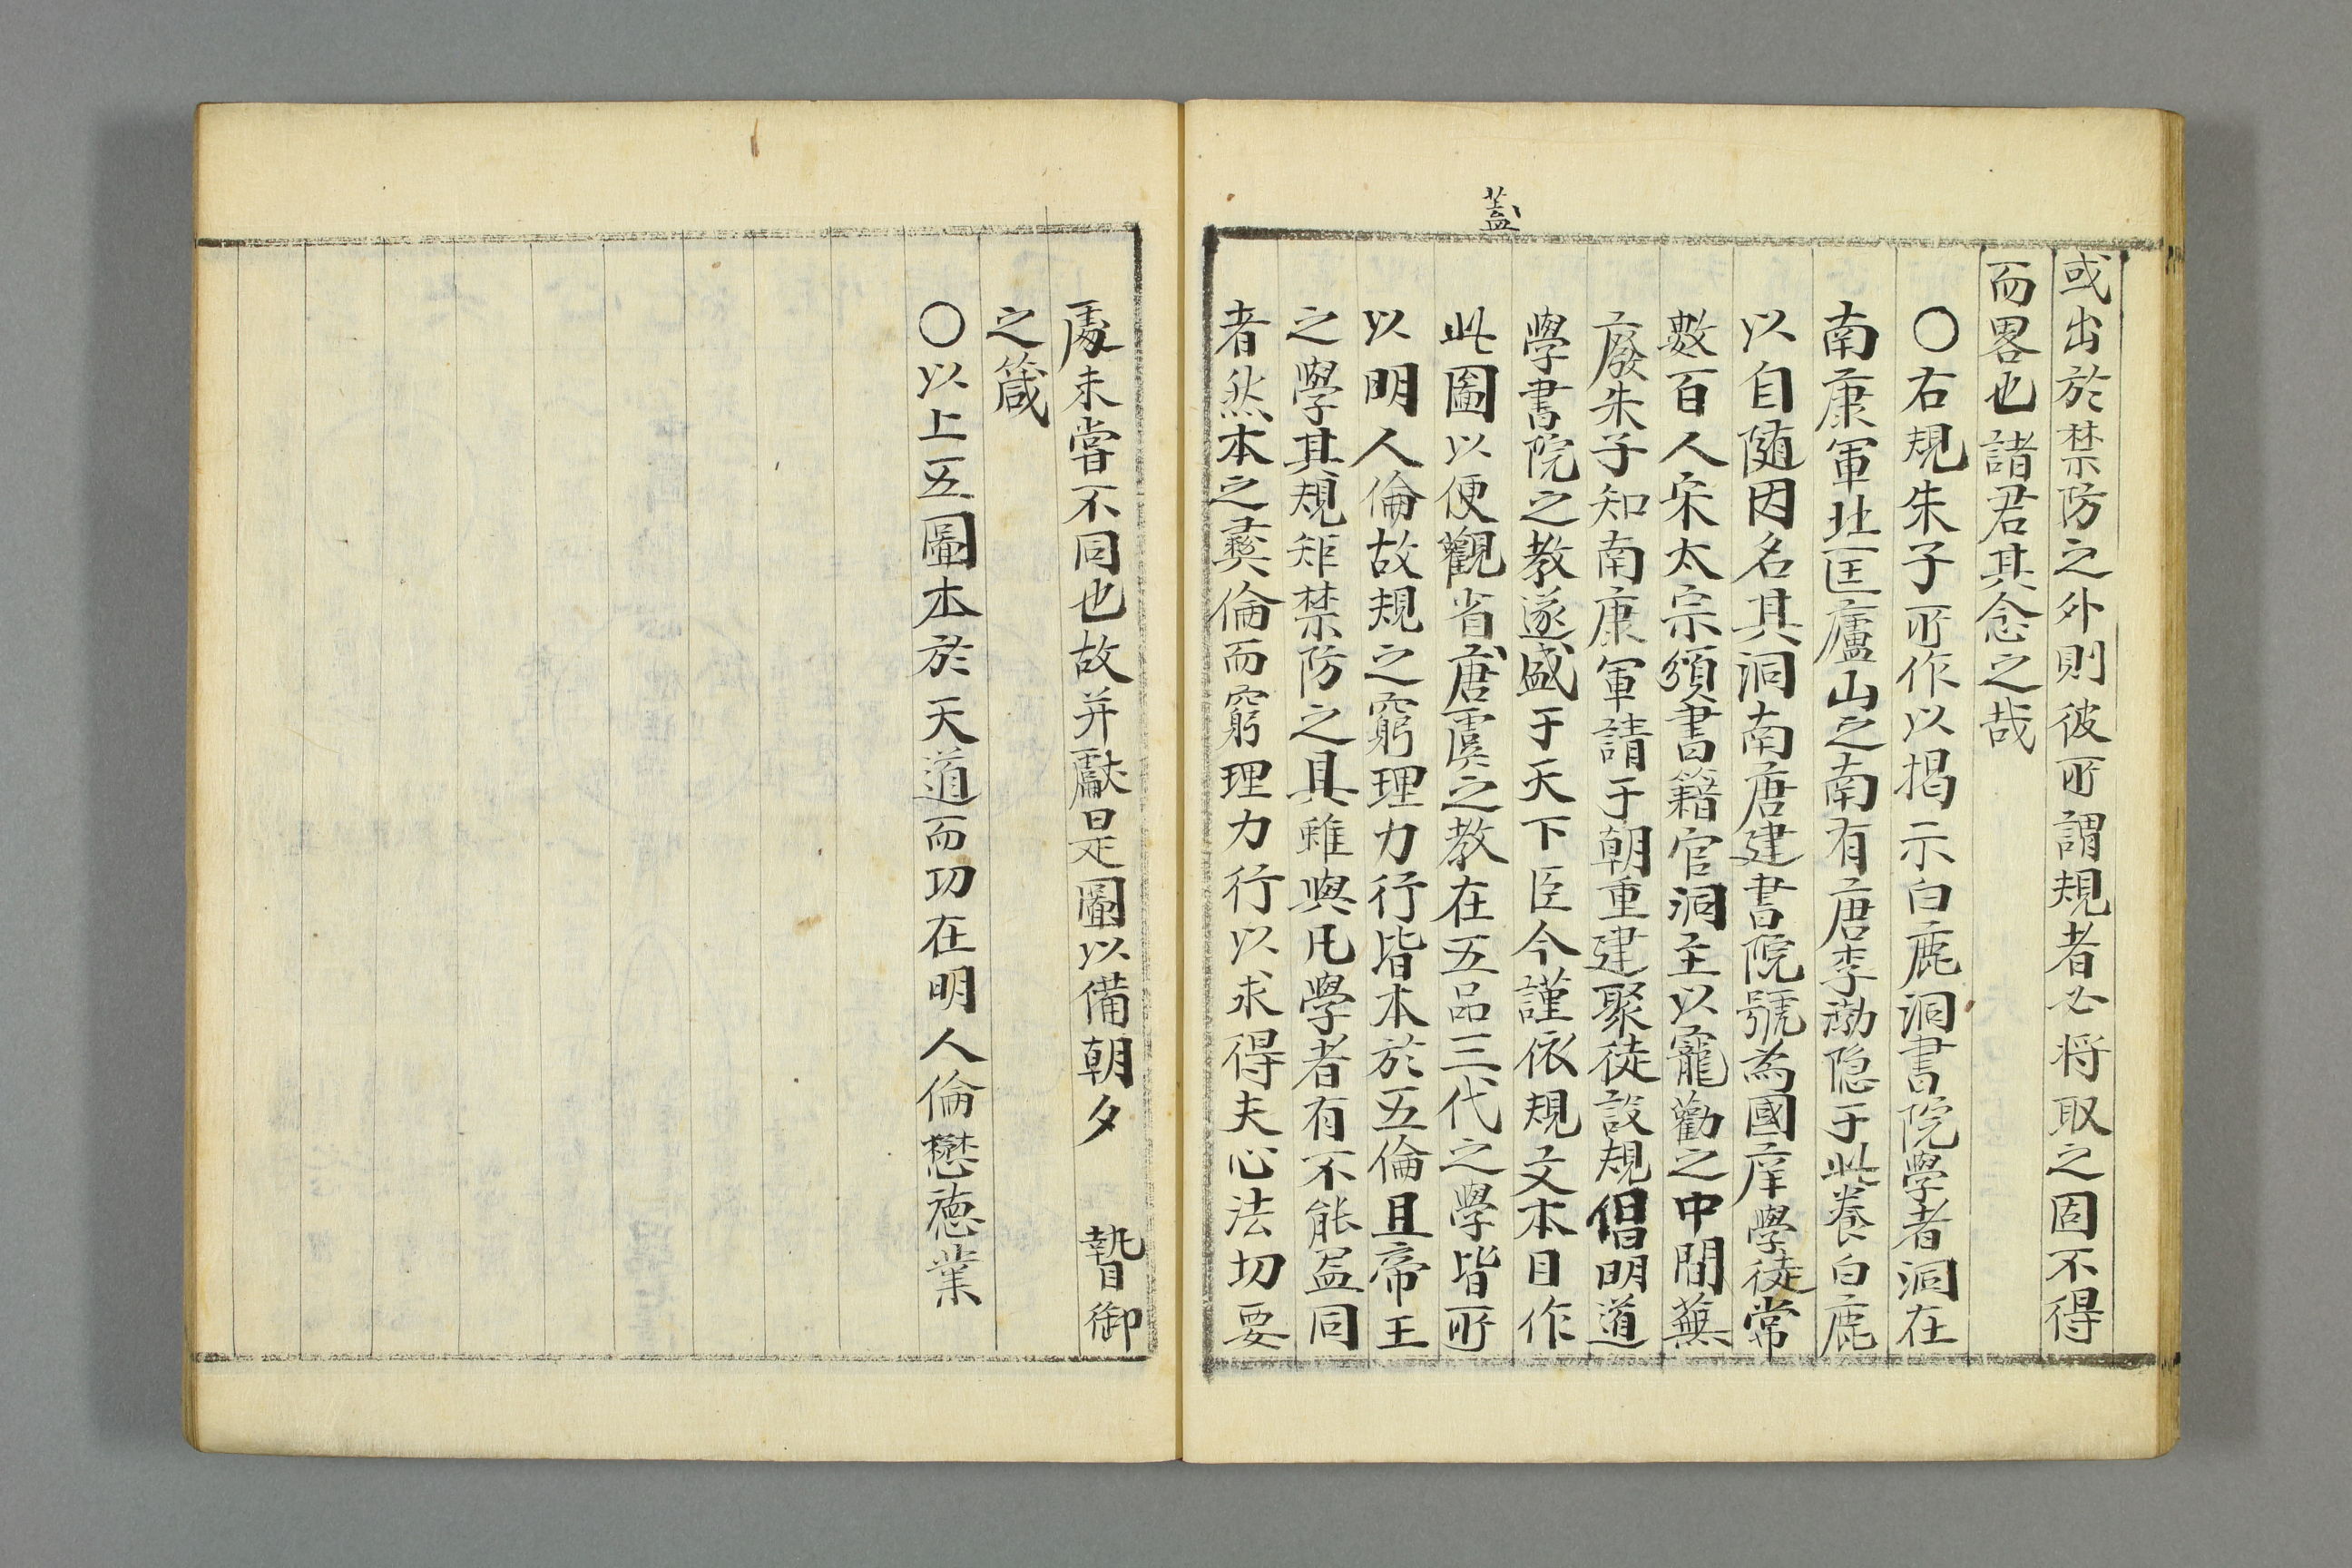 或出於禁防之外則彼所謂規者必将取之固不得
而畧也諸君其念之哉
○右規朱子所作以揭示白鹿洞書院學者洞在
南康軍北匡廬山之南有唐李渤隐于此養白鹿
以自随因名其洞南唐建書院號為國庠學徒常
數百人宋太宗頒書籍官洞主以寵勸之中間蕪
廢朱子知南康軍請于朝重建聚徒設規倡明道
學書院之教遂盛于天下臣今謹依規文本目作
蓋
此圖以便觀省唐虞之教在五品三代之學皆所
以明人倫故規之窮理力行皆本於五倫且帝王
之學其規矩禁防之具雖與凡學者有不能盡同
者然本之彝倫而窮理力行以求得夫心法切要
處未嘗不同也故并獻是圖以備朝夕 暬御
之箴
○以上五圖本於天道而功在明人倫懋德業